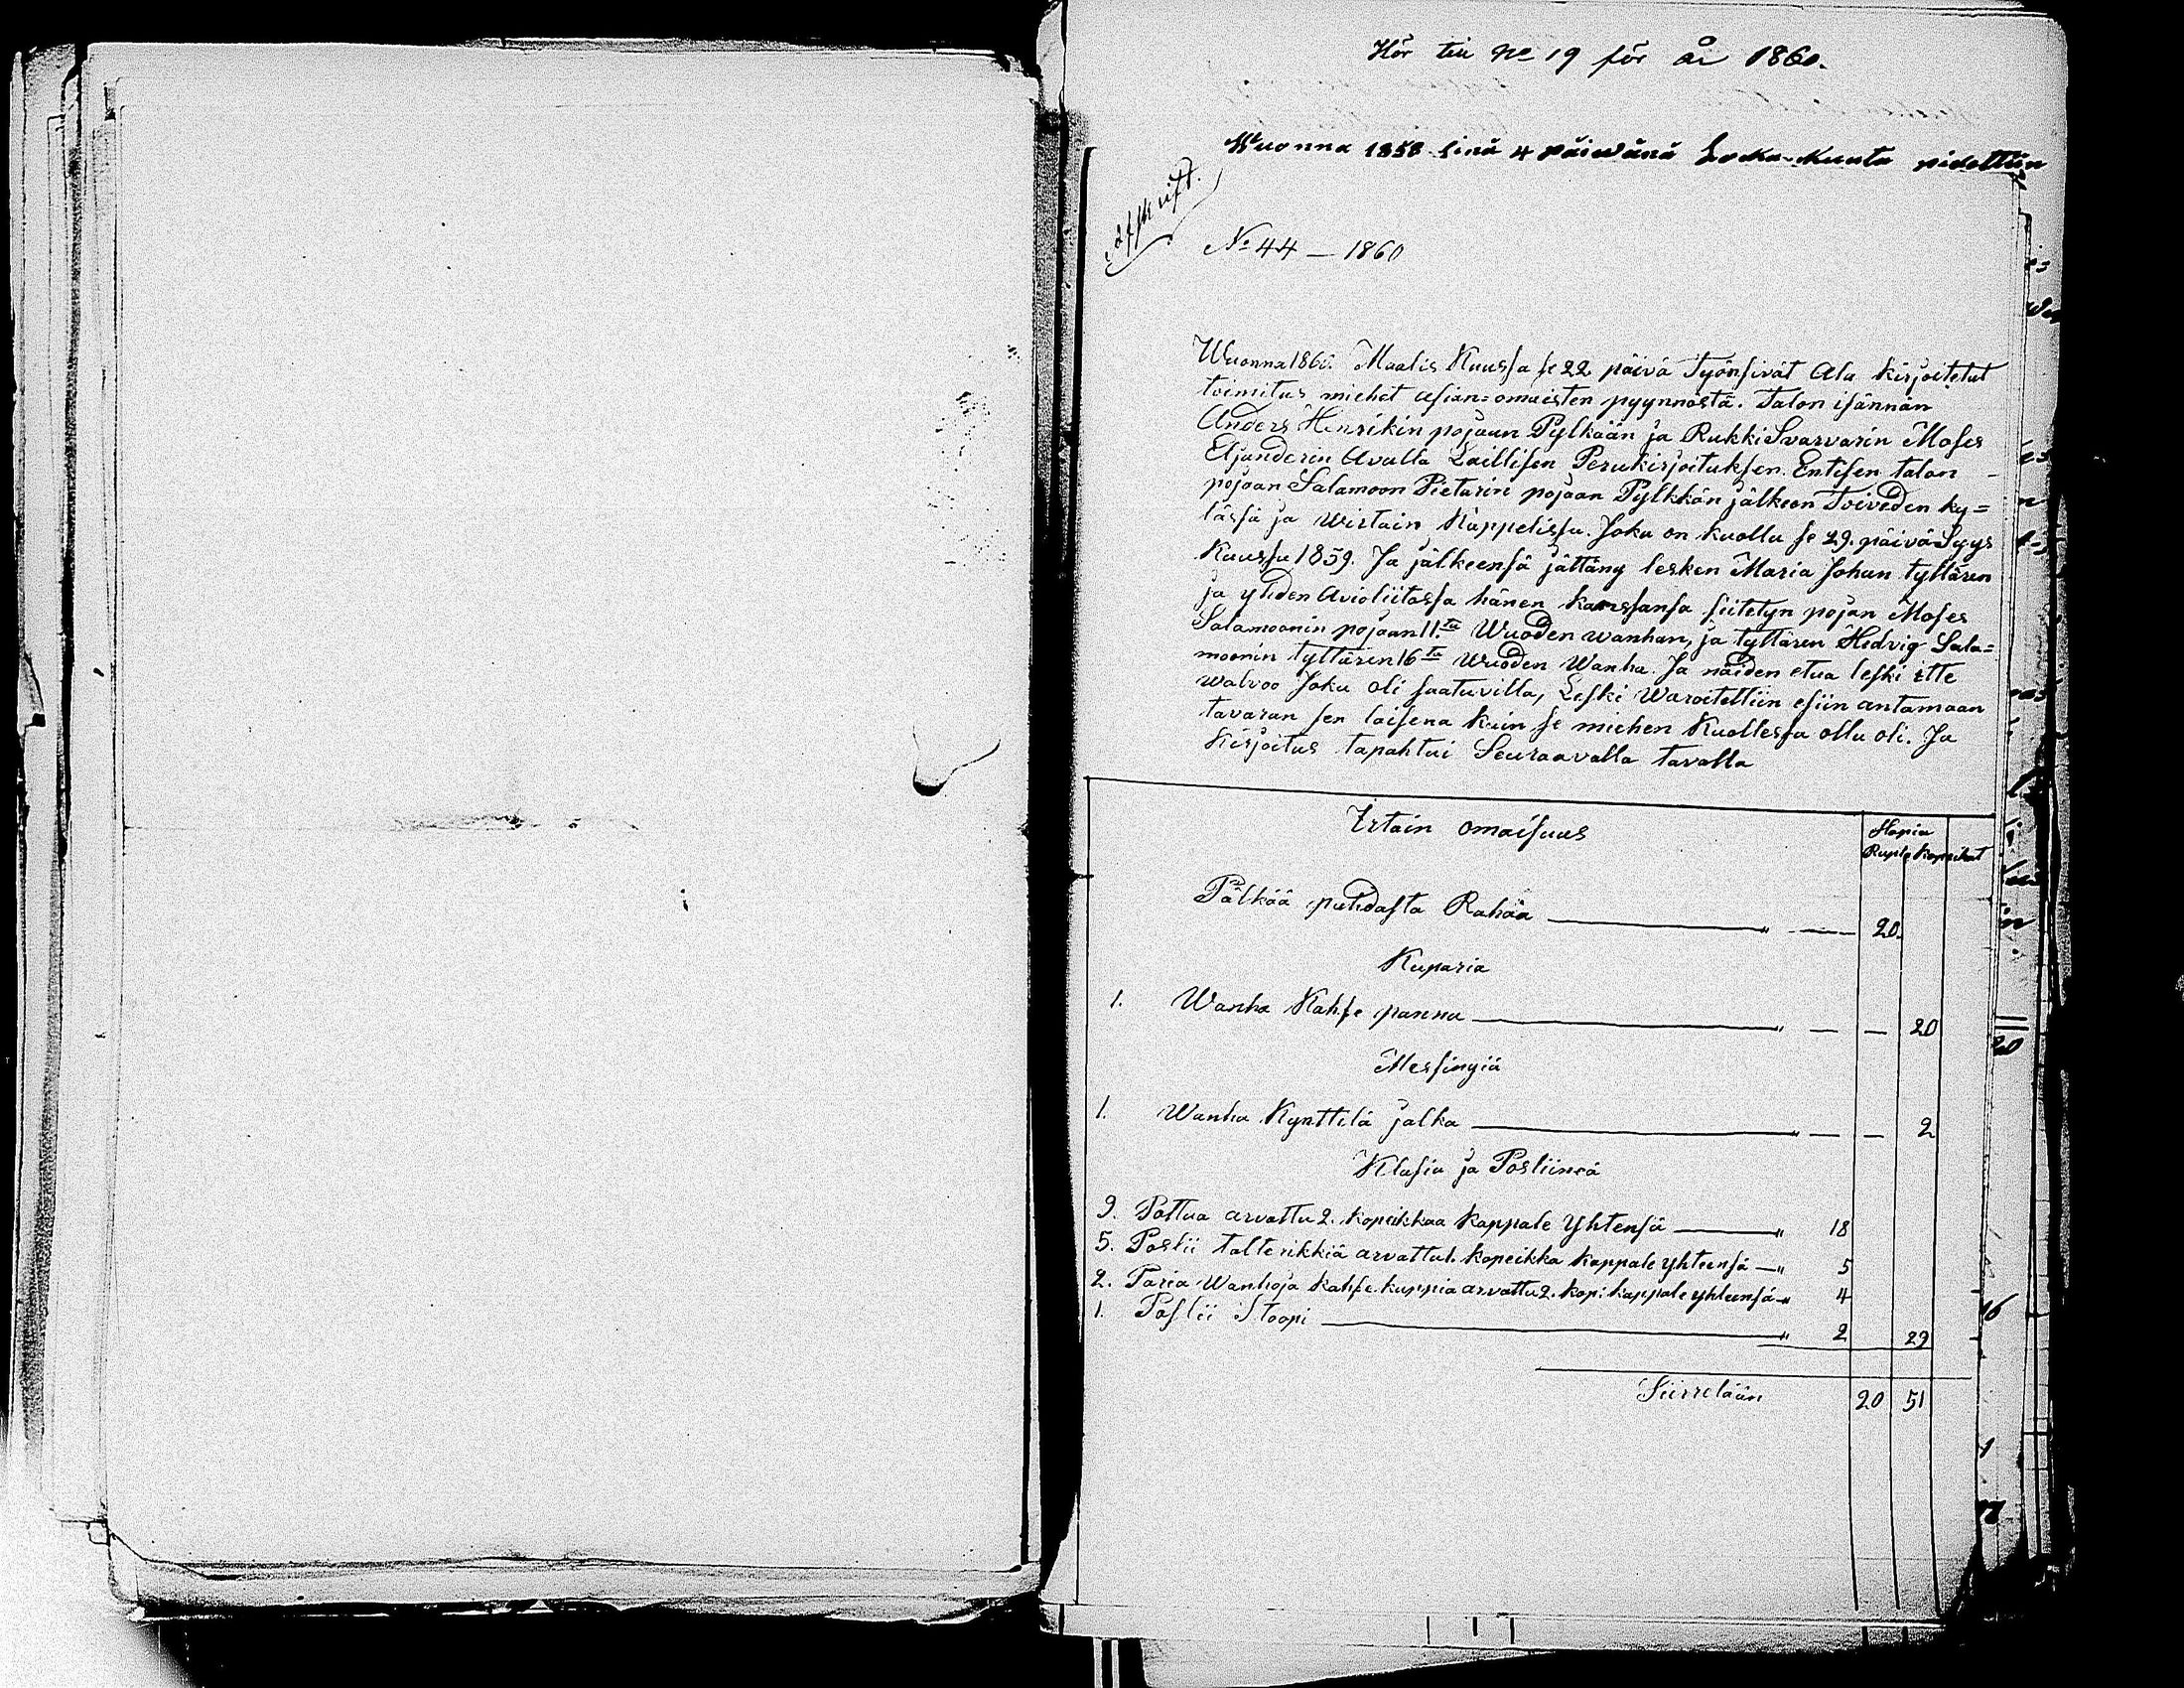 Hör till No 19 för år 1860.
Wuonna 1858 sinä 4 päiwänä Loka-Kuuta pidettiin
Afskrift.
No 44 — 1860
Wuonna 1860. Maalis Kuussa se 22 päivä Työnsivät Ala kirjoitetut
toimitus miehet asian=omaisten pyynnöstä. Talon isännän
Anders Henrikin pojaan Pylkään ja Rukki Svarvarin Moses
Eljanderin Avulla Laillisen Perukirjoituksen. Entisen talon
pojaan Salamoon Pietarin pojaan Pylkkän jälkeen Toiveden ky=
lässä ja Wirtain Kappelissa. Joka on kuollu se 29. päivä Syys
Kuussa 1859. Ja jälkeensä jättäny lesken Maria Johan tyttären
ja yhden Avioliitossa hänen kanssansa siitetyn pojan Moses
Salamoonin pojaan 11.ta Wuoden wanhan, ja tyttären Hedvig Sala=
moonin tyttären 16ta Wuoden Wanha. Ja näiden etua leski itte
walvoo Joka oli saatuvilla, Leski Waroitettiin esiin antamaan
tavaran sen laisena kuin se miehen Kuollessa ollu oli. Ja
Kirjoitus tapahtui Seuraavalla tavalla
Irtain omaisuus
Hopia
Rupla Kopeikat
Pälkää puhdasta Rahaa — " — 20.
Kuparia
1. Wanha Kahfe pannu — " — — 20
Messingiä
1. Wanha Kynttilä jalka — " — — 2
Klasia ja Posliinia
9. Pottua arvattu 2. kopeikkaa kappale Yhtensä — " 18
5. Poslii talterikkiä arvattu 1. kopeikka kappale yhteensä — " 5
2. Paria Wanhoja kahfe kuppia arvattu 2. kopi kappale yhteensä — " 4
1. Poslii Stoopi — " 2 29
Siirretään 20 51